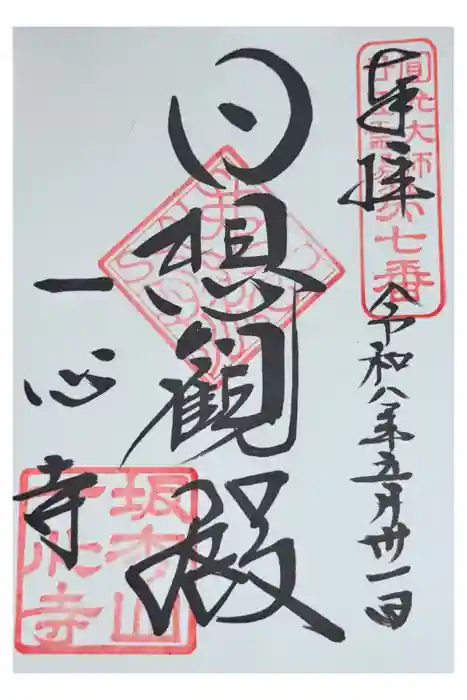 奉拝
圓光大師
廿五霊場第七番
令和八年五月卅一日
日想観殿
一心寺
坂松山
一心寺